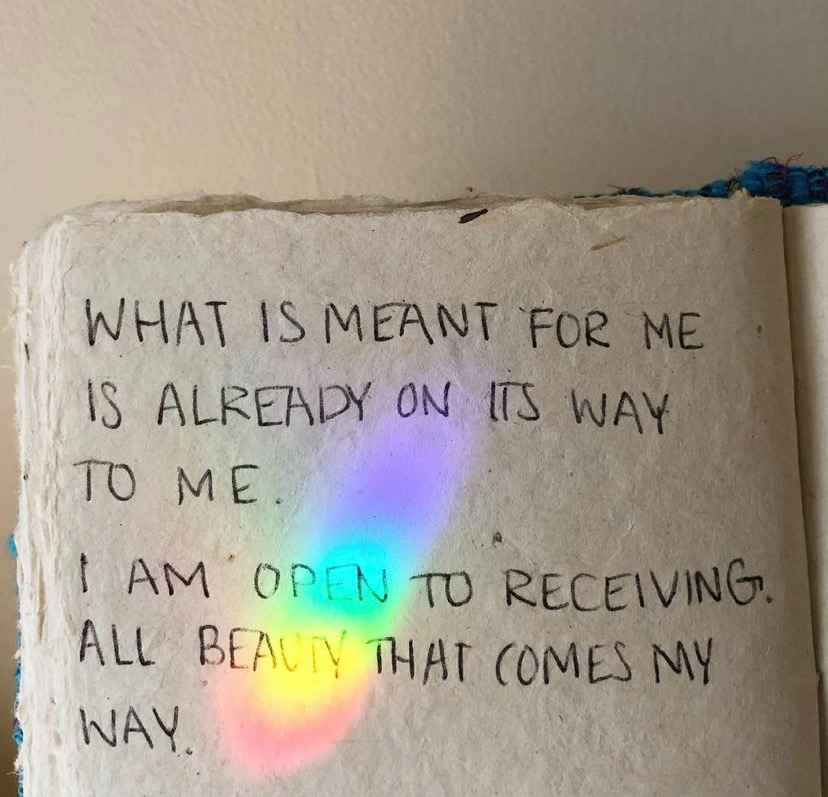 WHAT IS MEANT FOR ME
IS ALREADY ON ITS WAY
TO ME.
I AM OPEN TO RECEIVING.
ALL BEAUTY THAT COMES MY
WAY.